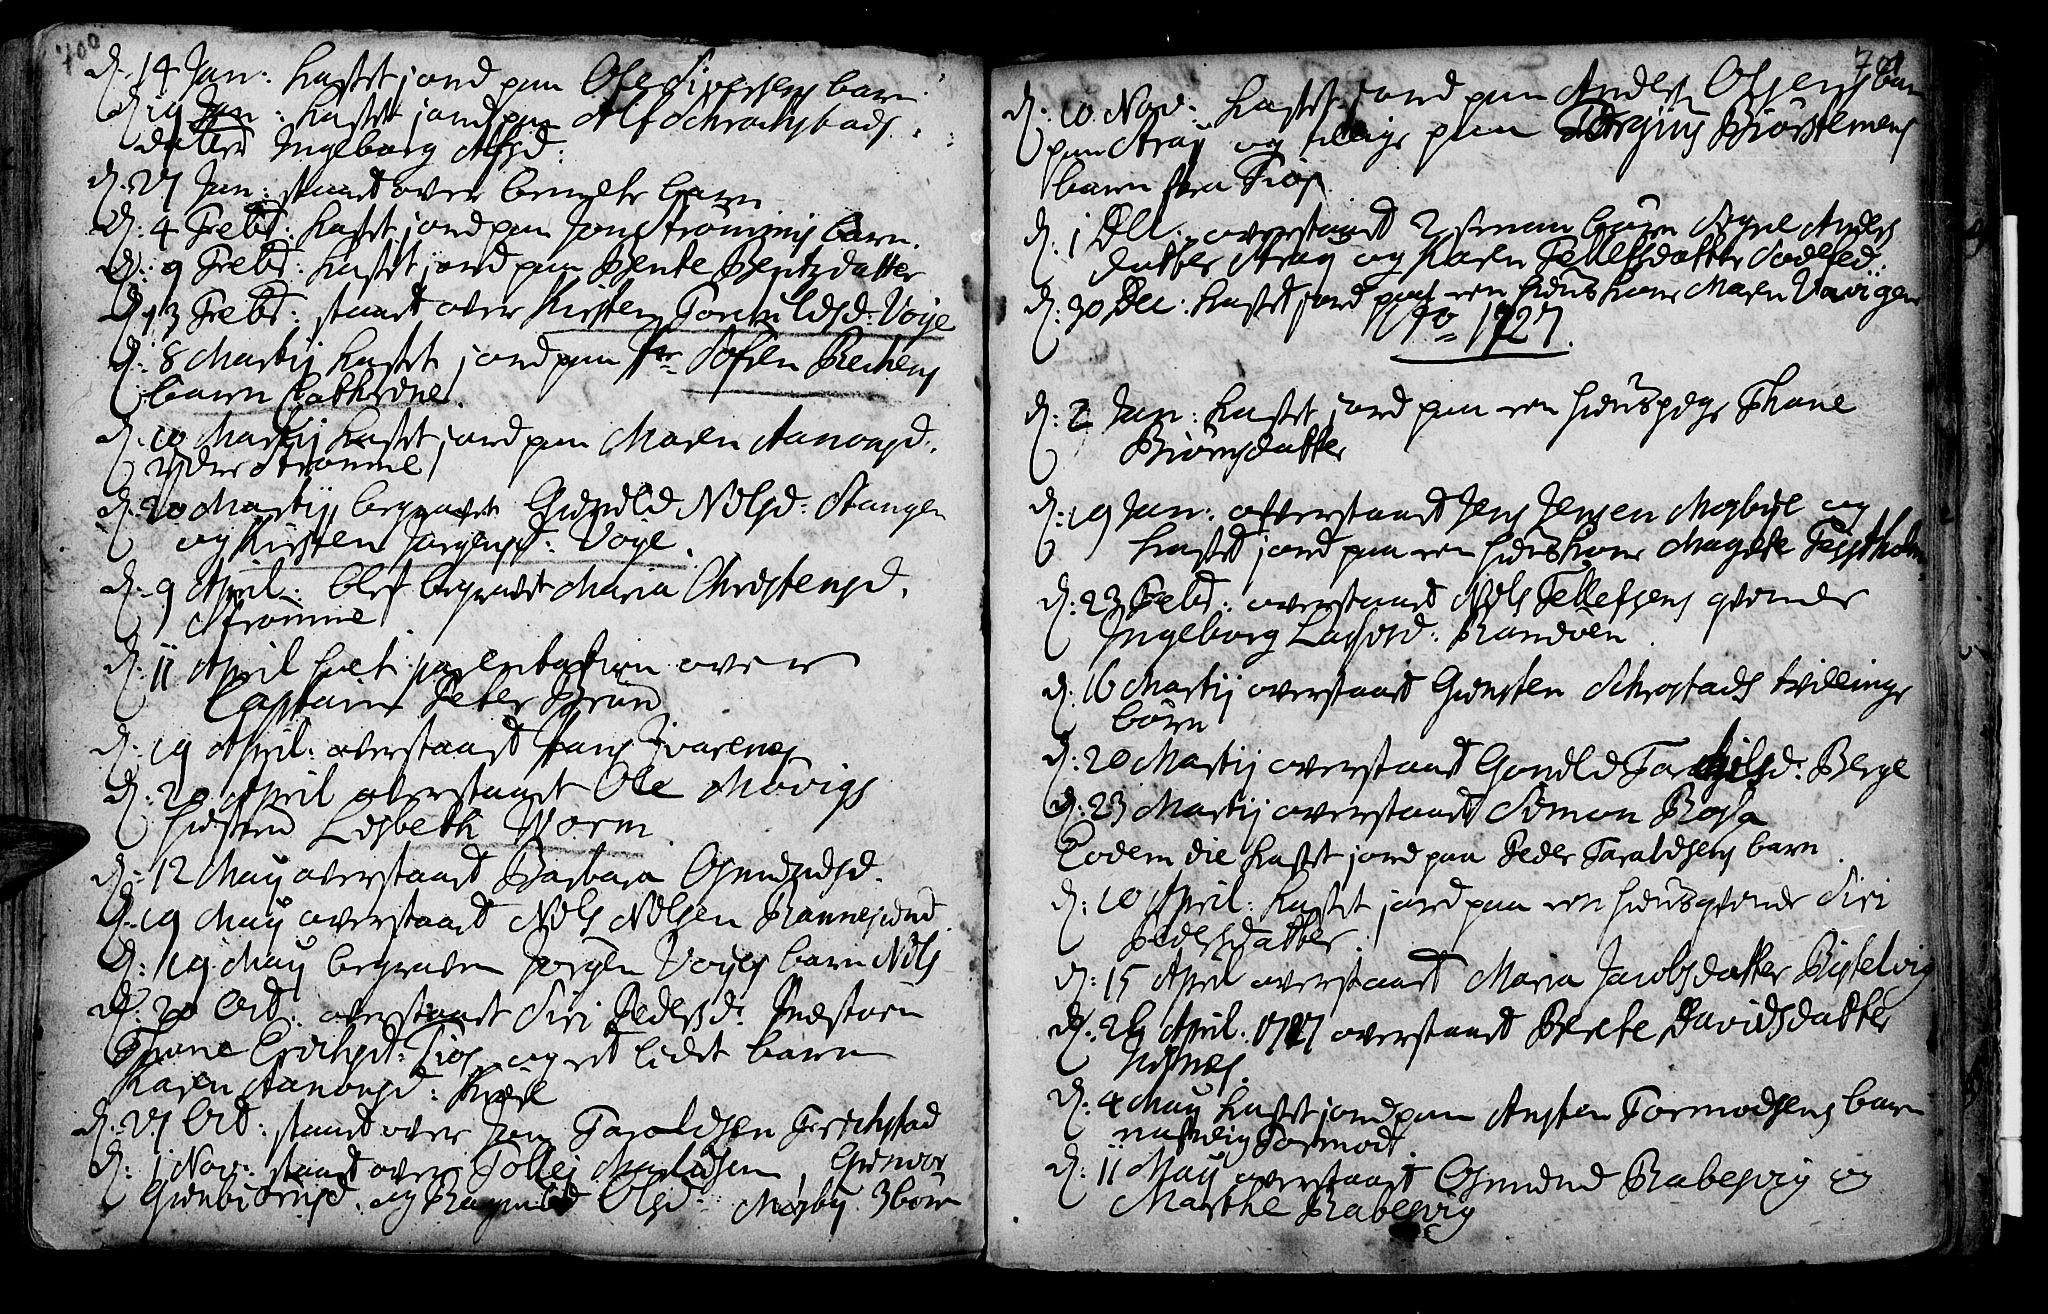 700
d. 14 Jan: kastet jord paa Ole Sivertsens barn
d. 19 Jan: kastet jord paa Alf Schrostads
datter Ingeborg Alfsd:
d. 27 Jan: staaet over barn
d. 4 Febr: kastet jord paa Jon Strømmis barn.
d. 9 Febr: kastet jord paa Bente Bentzdatter
d. 13 Febr: staaet over Kirsten Torkildsd: Voye
d. 8 Martij kastet jord paa Hr Søfren
barn Cathrine.
d. 10 Martij kastet jord paa Maren Aanonsd.
Strømme
d. 20 Martij begravet Gunild Nilsd: Stangen
og Kirsten Jørgensd: Voye.
d. 9 April: blef begravet Maria Christensd.
Strømme
d. 11 April holt parentation over
Captain Peter Brun
d. 19 April: overstaaet Hans Ivarenes
d. 20 April overstaaet Ole Møvigs
hustrue Lisbeth Worm
d. 12 May overstaaet Barbara Osmundsd.
d. 19 May overstaaet Nils Nilsen Rannesund
d. 19 May begraven Jørgen Voyes barn Nils
d. 20 Oct: overstaaet Siri Pedersd:
Thone Erichsd: Fios, og et lidet barn
Karen Aanonsd:
d. 27 Oct: staaet over Jon Taraldsen
d. 1 Nov: staaet over Tollei Gunvor
Gunbiørnsd. og Ragnild Olsd: Mosby 3 børn
701
d. 10 Nov: kastet jord paa Anders Olsens barn
paa Aray og tillige paa Tergius Biørstemens
barn fra Fios
d. 1 Dec: overstaaet 2 smaa børn Signe Anders
datter Aray og Karen Tellefsdatter
d. 30 Dec: kastet jord paa en huuskone Maren
Ao 1727.
d. 2 Jan: kastet jord paa en huuspige Thone
Biørnsdatter
d. 19 Jan: overstaaet Jens Jensen Mosbye og
kastet jord paa en huuskone Magrete
d. 23 Febr: overstaaet Nils Tellefsens qvinde
Ingeborg Randøen
d. 16 Martij overstaaet Gunsten Schrostads tvillinge
børn
d. 20 Martij overstaaet Gondld Berge
d. 23 Martij overstaaet Simon Rosa
Eodem die kastet jord paa Peder Taraldsens barn
d. 10 April: kastet jord paa en huusqvinde Siri
Pedersdatter
d. 15 April overstaaet Maria Jacobsdatter
d. 26 April: 1727 overstaaet Berete Davidsdatter
d. 4 May kastet jord paa Ansten Tormodsens barn
nafnlig Tormod.
d. 11 May overstaaet Osmund Rabesvig og
Marthe Rabesvig